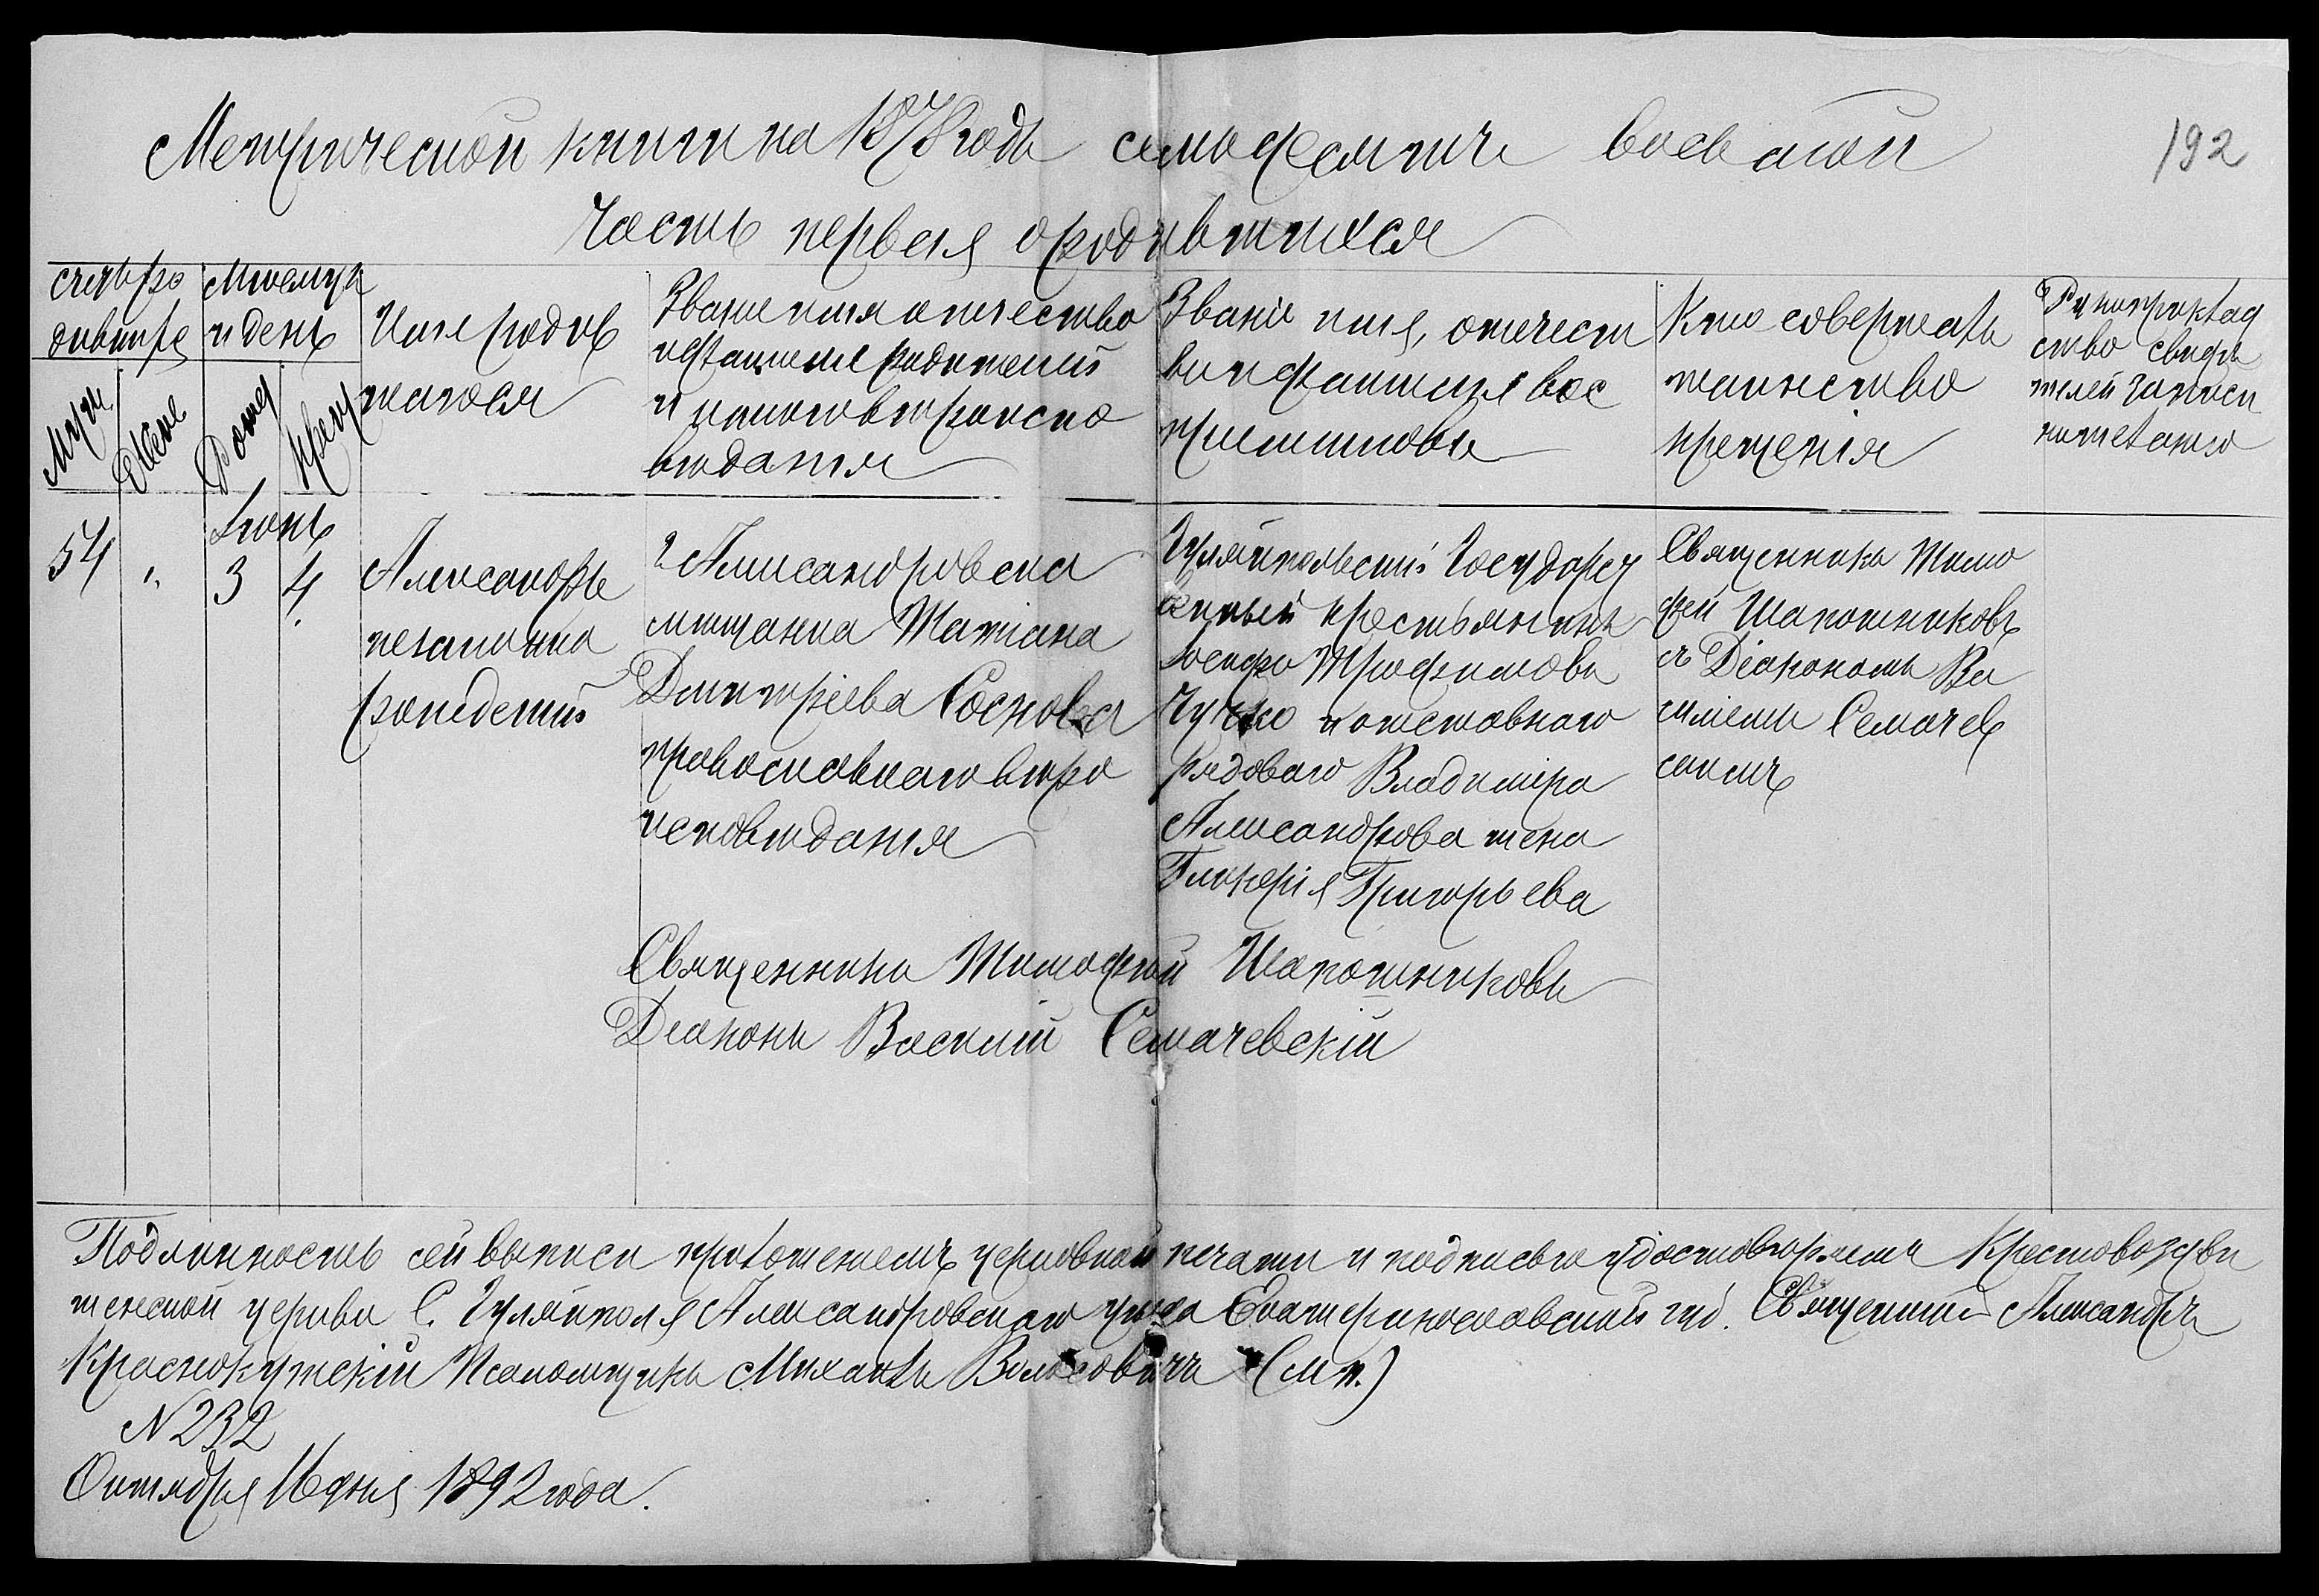 Метрической книги на 1878 годъ семьдесятъ восьмой
192
Часть первая о родившихся
Счетъ ро
дившхся
Муж
Жене
Мѣсяцъ
и день
Рожд
Крещ
Имя родив
шагося
Званіе имя отчество
и фамилія родителей
и какого вѣроиспо
вѣданія
Званіе имя, отчест
во и фамилія вос
пріемниковъ
Кто совершалъ
таинство
крещенія
Рукоприклад
ство свидѣ
телей записи
по желанію
54 " Іюнь
3 4
Александръ
незаконно
рожденный
г Александровска
мѣщанка Татіана
Дмитріева Соснова
православнаго вѣро
исповѣданія
Гуляйпольскій Государст
венный крестьянинъ
Іосифъ Трофимовъ
Чучко и отставнаго
рядоваго Владиміра
Александрова жена
Гликерія Григорьева
Священникъ Тимо
фей Шапошниковъ
съ Діакономъ Ва
силіемъ Семачев
скимъ
Священникъ Тимофей Шапошниковъ
Діаконъ Василій Семачевскій
Подлинность сей выписи приложеніемъ церковной печати и подписью удостовѣряемъ Крестовоздви
женской церкви С. Гуляйполя Александровскаго уѣзда Екатеринославской губ. Священникъ Александръ
Краснокутскій Псаломщикъ Михаилъ Волосовичъ (м п.)
N 232
Октября 16 дня 1892 года.